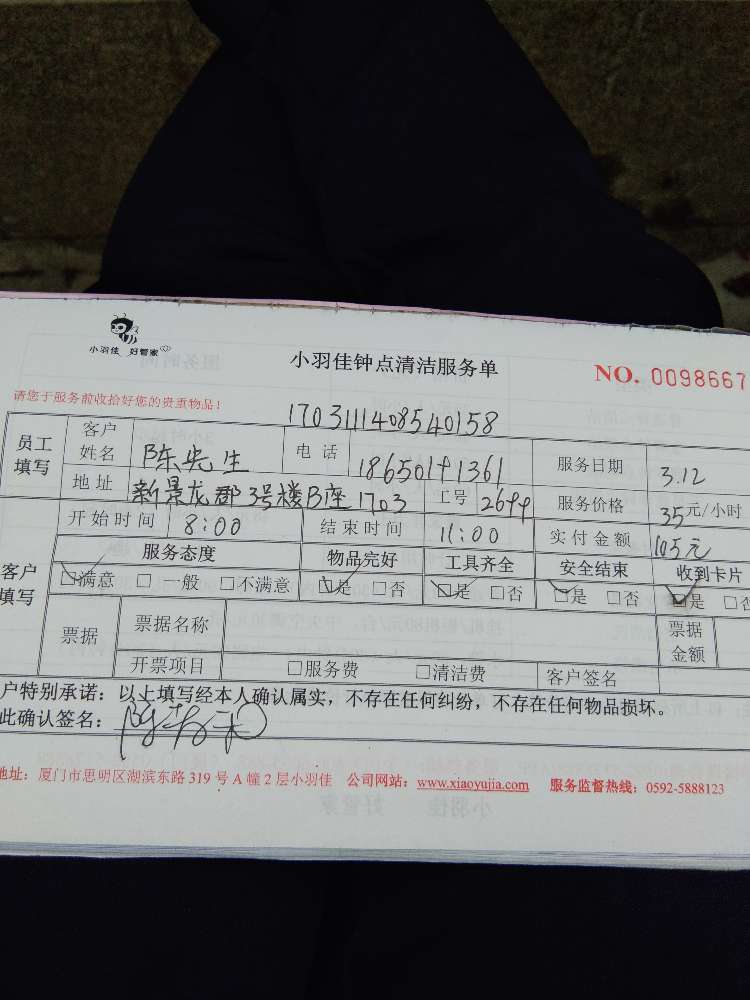 小羽佳 好管家
小羽佳钟点清洁服务单
NO. 0098667
请您于服务前收拾好您的贵重物品！
1703111408540158
员工填写 客户姓名 陈先生 电话 18650191361 服务日期 3.12
地址 新景龙郡3号楼B座1703 工号 2699 服务价格 35元/小时
开始时间 8:00 结束时间 11:00 实付金额 105元
客户填写 服务态度 物品完好 工具齐全 安全结束 收到卡片
□满意 □一般 □不满意 □是 □否 □是 □否 □是 □否 □是 □否
票据 票据名称 票据金额
开票项目 □服务费 □清洁费 客户签名
户特别承诺：以上填写经本人确认属实，不存在任何纠纷，不存在任何物品损坏。
此确认签名：
地址：厦门市思明区湖滨东路 319 号 A 幢 2 层小羽佳 公司网站：www.xiaoyujia.com 服务监督热线：0592-5888123